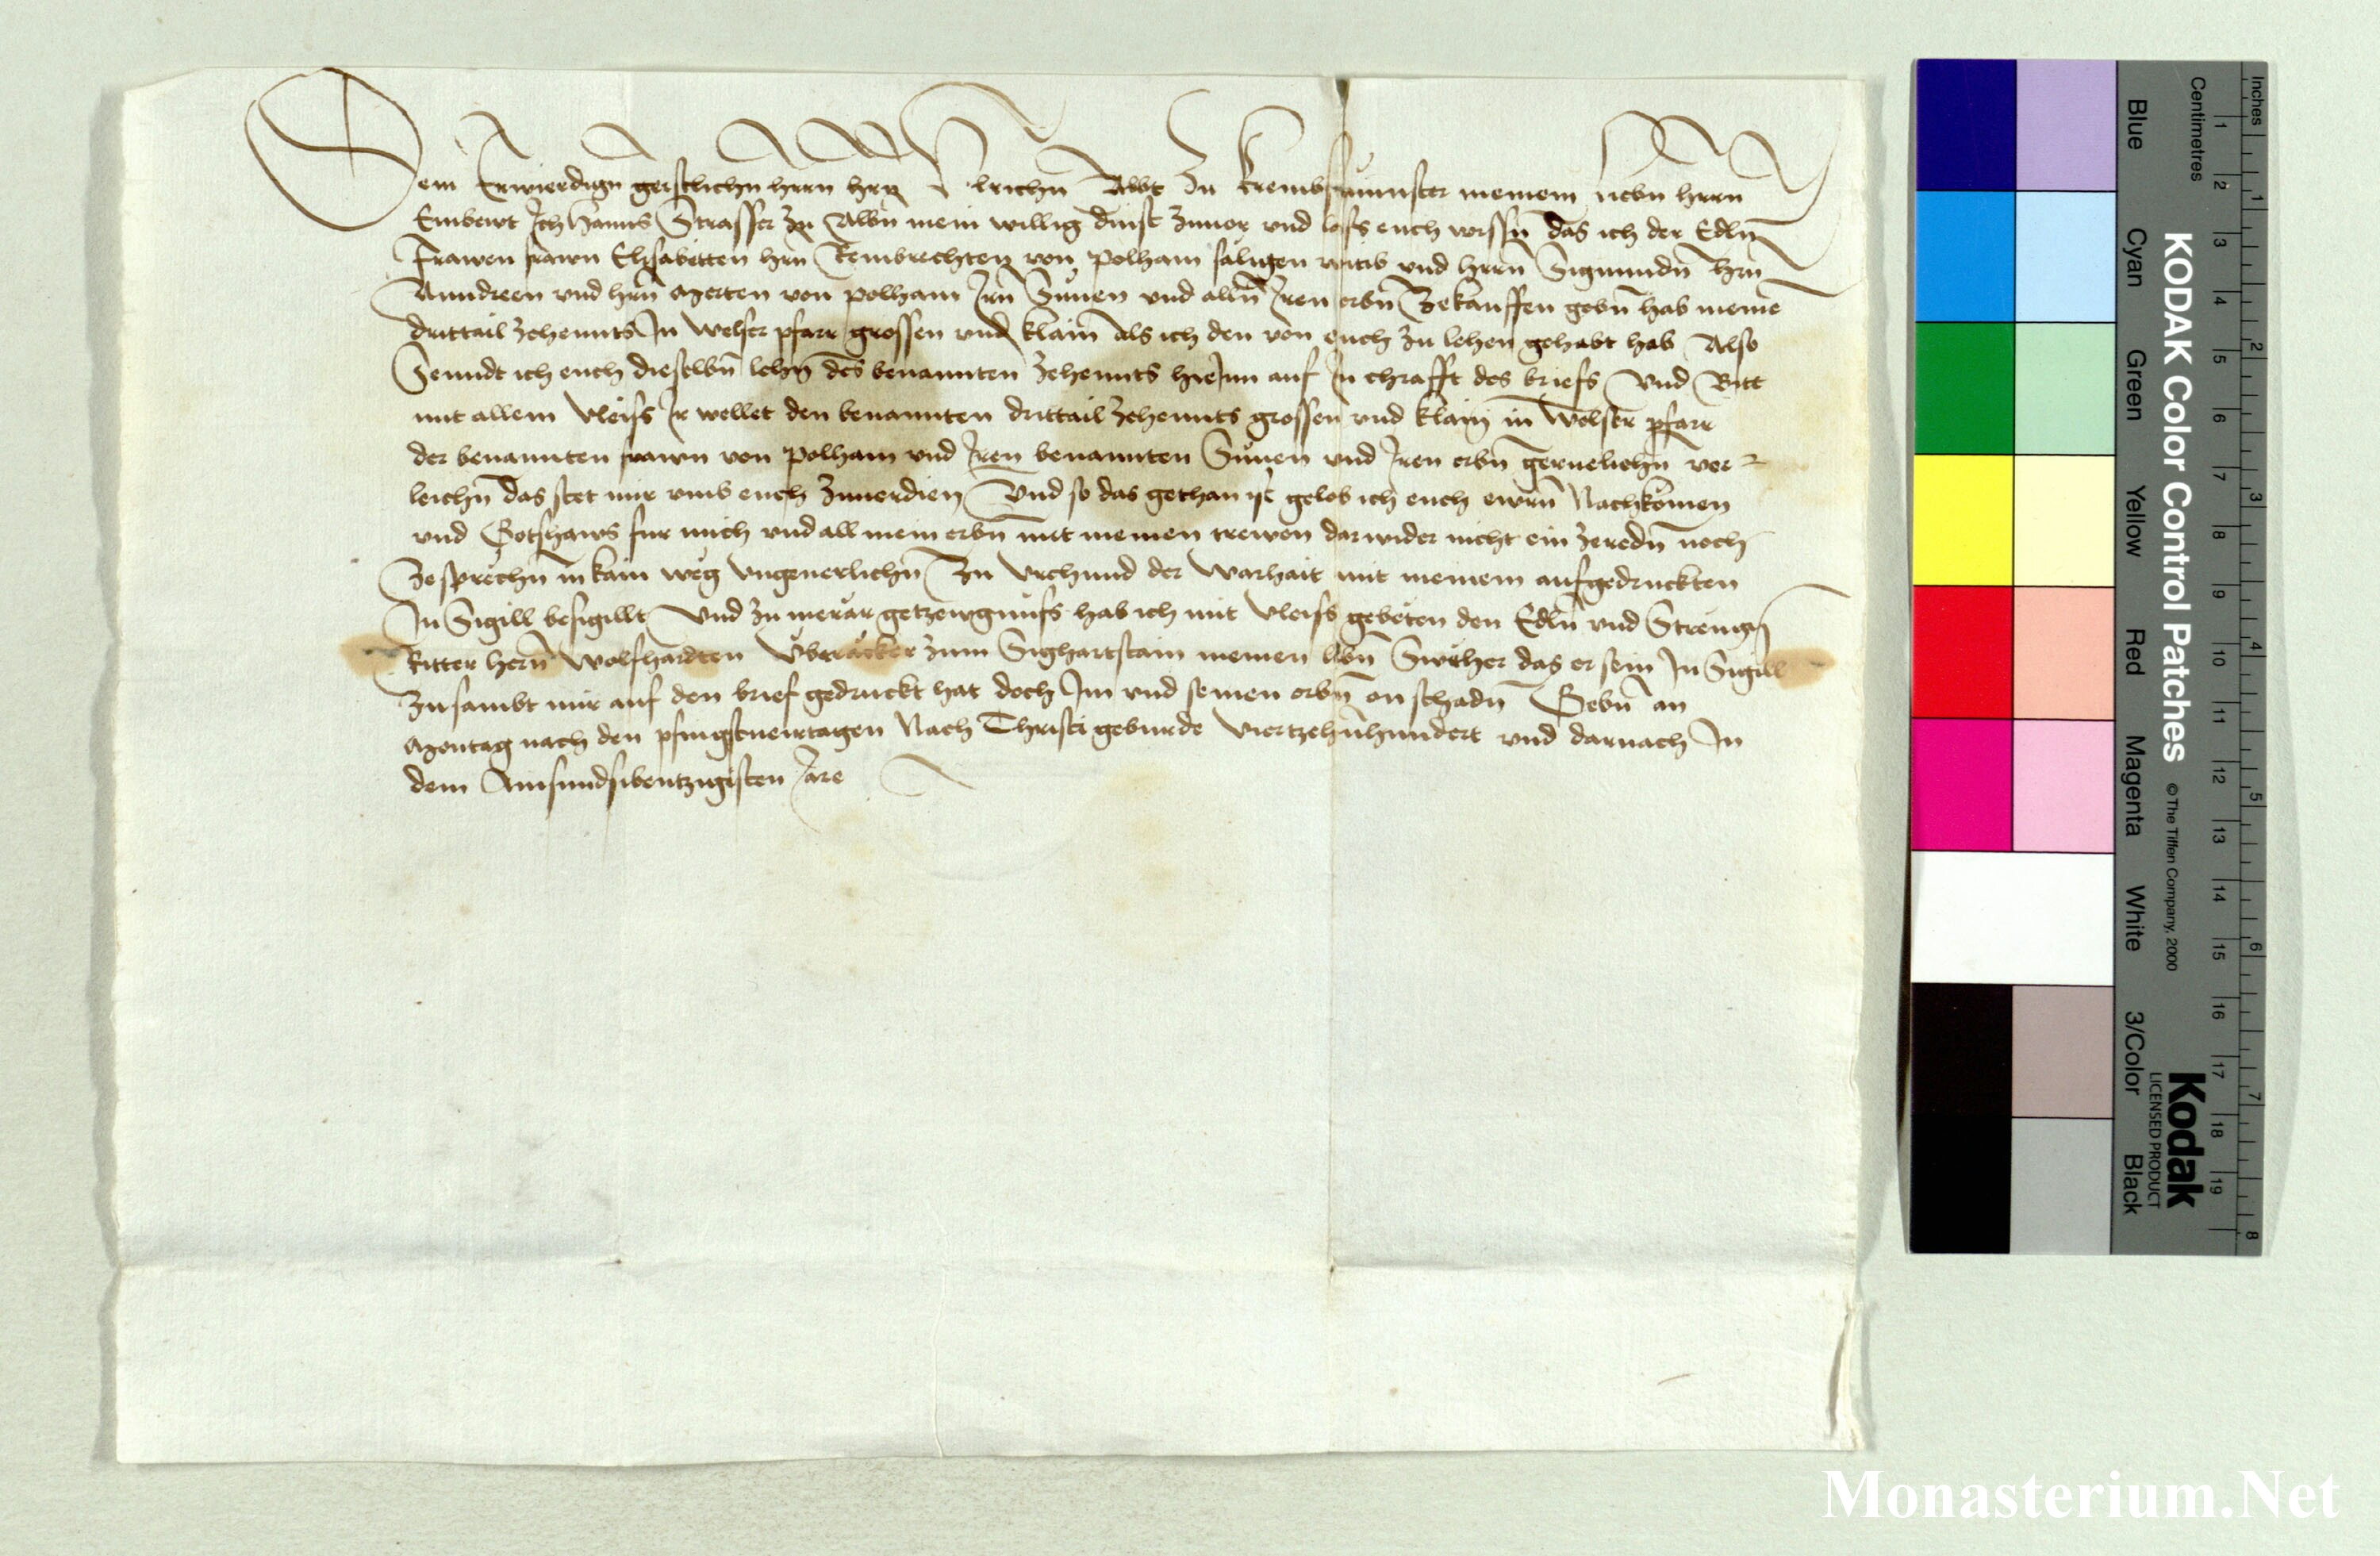 Dem Erwierdign geistlichn herrn hern Vlrichn Abbt zu Krembsmunster meinem liebn herrn
Embeut Ich Hanns Strasser zu Albm mein willig dinst zuuor vnd lass euch wissn das ich der Edln
Frawen frawn Elisabetten hern Rembrechten von Polham saligen witib vnd herrn Sigmundn hrn
Anndreen vnd hern Merten von Polham Irn Sunen vnd alln Iren erbn zekauffen gebn hab meine
drittail zehennts In Welser pfarr grossen vnd klain als ich den von euch zu lehen gehabt hab Also
Senndt ich euch dieselbn lehn des benannten zehennts hieInn auf In chrafft des briefs vnd Bitt
mit allem Vleiss Ir wellet den benannten drittail zehennts grossen vnd klain in Welser pfarr
der benannten frawn von Polham vnd Iren benannten Sunen vnd Iren erbn geruelichn ver
leichn das stet mir vmb euch zuuerdien Vnd so das gethan ist gelob ich euch ewrn Nachkomen
vnd Gotshaws fur mich vnd all mein erbn mit meinen trewen darwider nicht ein zeredn noch
zesprechn in kain weg vngeuerlichn Zu Vrchund der Warhait mit meinem aufgedruckten
In Sigill besigillt Vnd zu merar getzewgnuss hab ich mit Vleiss gebeten den Edln vnd Strengn
Ritter hern Wolfhardten Vberacker zum Sighartstain meinen libn Sweher das er sein In Sigill
zusambt mir auf den brief gedruckt hat doch Im vnd seinen erbn on schadn Gebn an
Montag nach den pfingstueirtagen Nach Christi geburde Viertzehnhundert vnd darnach In
dem Ainsundsibentzigisten Jare
KODAK Color Control Patches
© The Tiffen Company, 2000
Kodak
LICENSED PRODUCT
Blue Cyan Green Yellow Red Magenta White 3/Color Black
Inches 1 2 3 4 5 6 7 8
Centimetres 1 2 3 4 5 6 7 8 9 10 11 12 13 14 15 16 17 18 19
Monasterium.Net